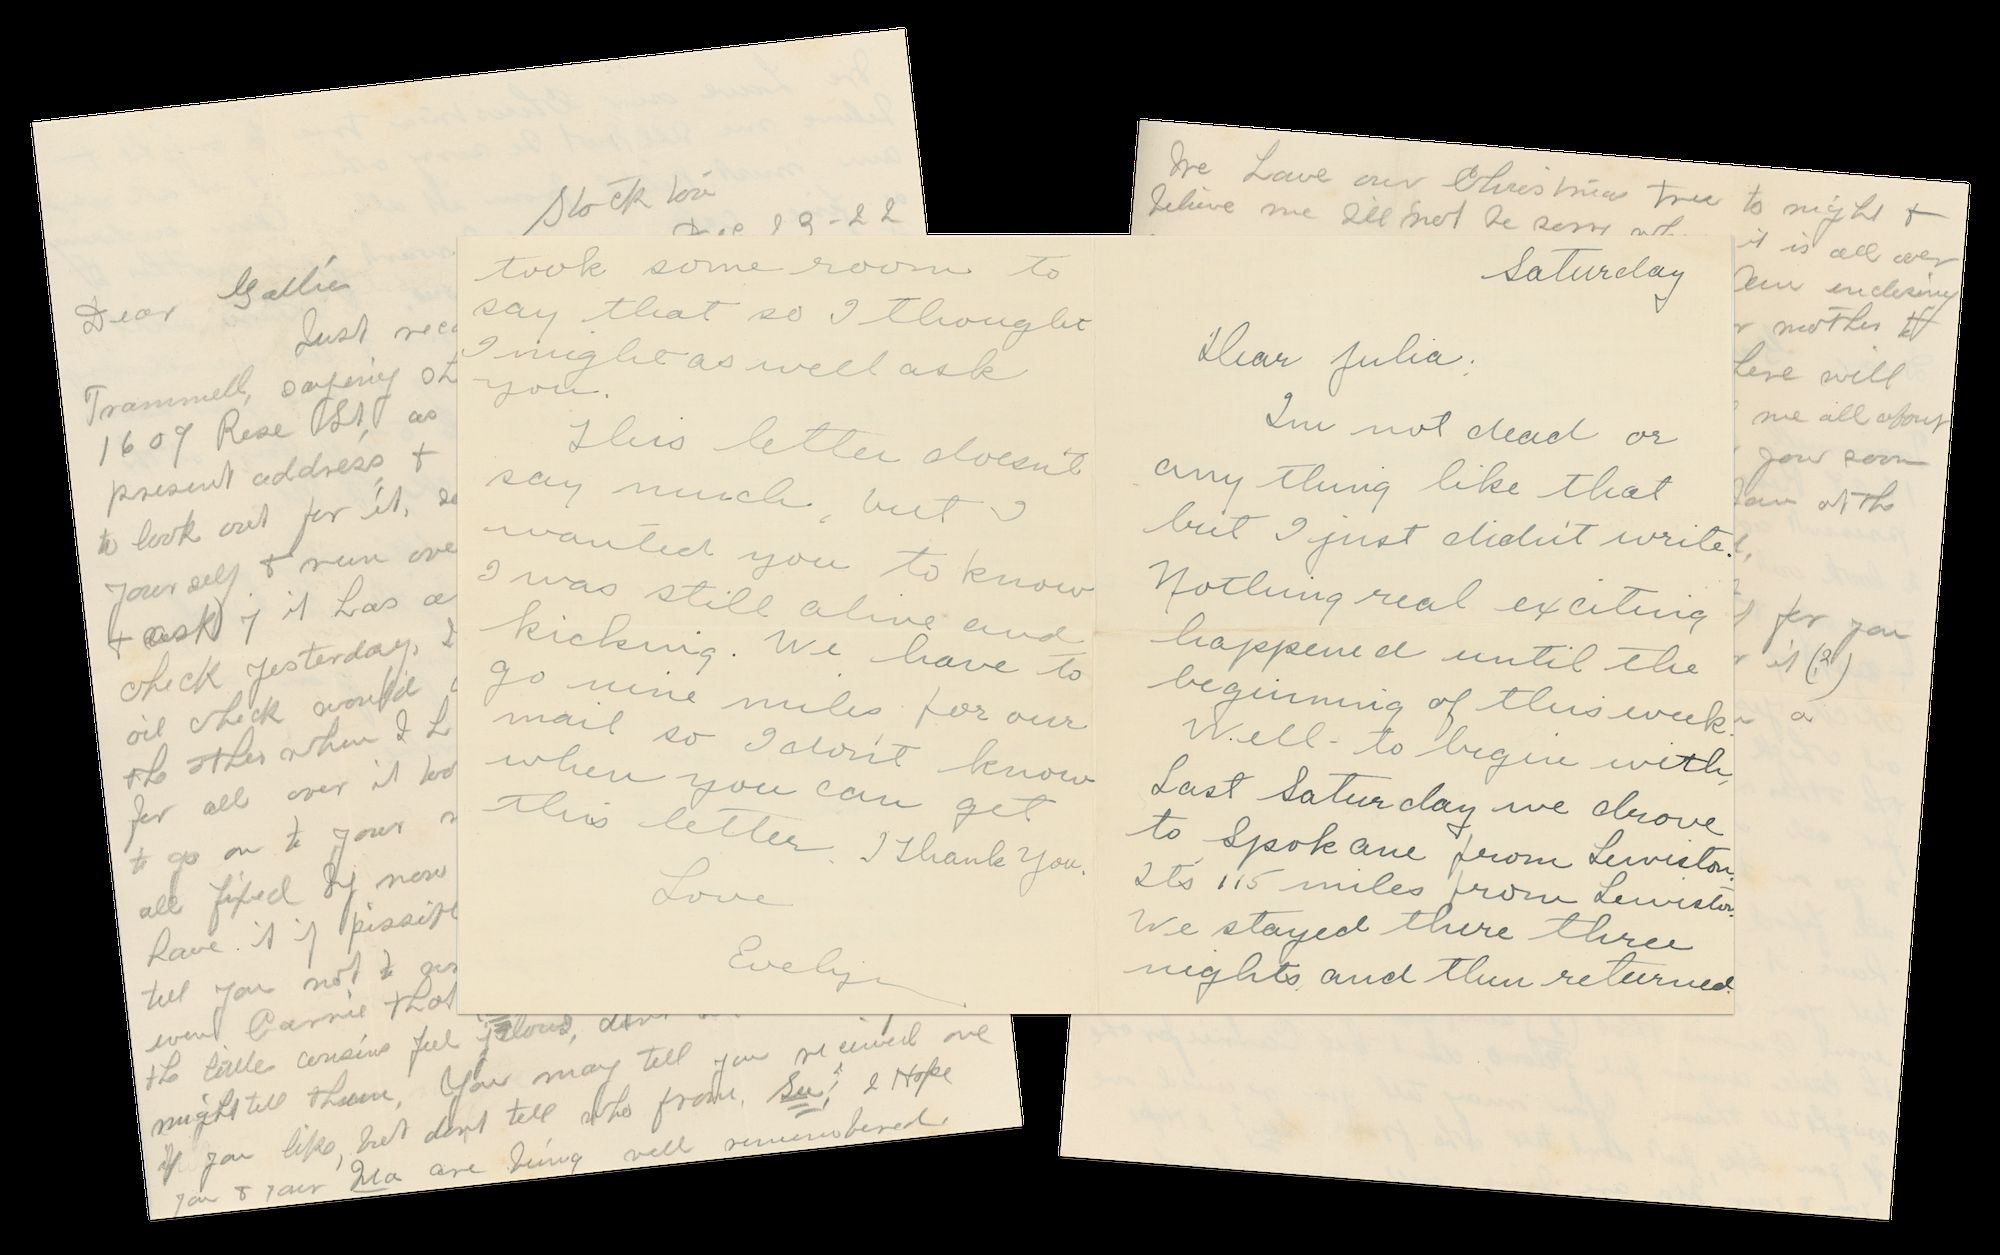 Stockton
Dec 19-22
Dear Gallie
Just rec
Trammell, saying
1607 Rose St, as
present address, +
to look out for it,
yourself + run ove
+ ask if it has
check yesterday,
oil check would
the other when I h
for all over it
to go on to your
all fixed by now
have it if possib
tell you not to
even Carrie that
the little cousins feel jelous, dont
might tell them, You may tell you received one
if you like, but dont tell who from. See! I Hope
you + your Ma are being well remembered.
took some room to
say that so I thought
I might as well ask
you.
This letter doesn't
say much, but I
wanted you to know
I was still alive and
kicking. We have to
go nine miles for our
mail so I don't know
when you can get
this letter. I thank you.
Love
Evelyn
Saturday
Dear Julia:
I'm not dead or
any thing like that
but I just didn't write.
Nothing real exciting
happened until the
beginning of this week.
Well- to begin with,
Last Saturday we drove
to Spokane from Lewiston.
It's 115 miles from Lewiston.
We stayed there three
nights, and then returned.
We have our Christmas tree to night +
believe me Ill not be sorry it is all over
enclosing
mother
here will
me all about
your soon
at the
for you
it (?)
a